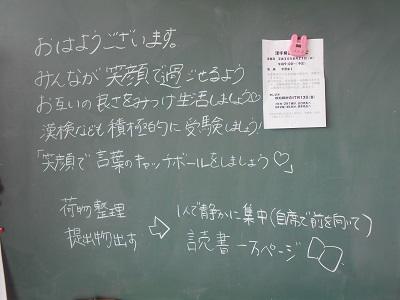 おはようございます。
みんなが笑顔で過ごせるよう
お互いの良さをみつけ生活しましょう♡
漢検なども積極的に受験しましょう!
「笑顔で言葉のキャッチボールをしましょう♡」
荷物整理
提出物出す
⇨
1人で静かに集中(自席で前を向いて)
読書一万ページ